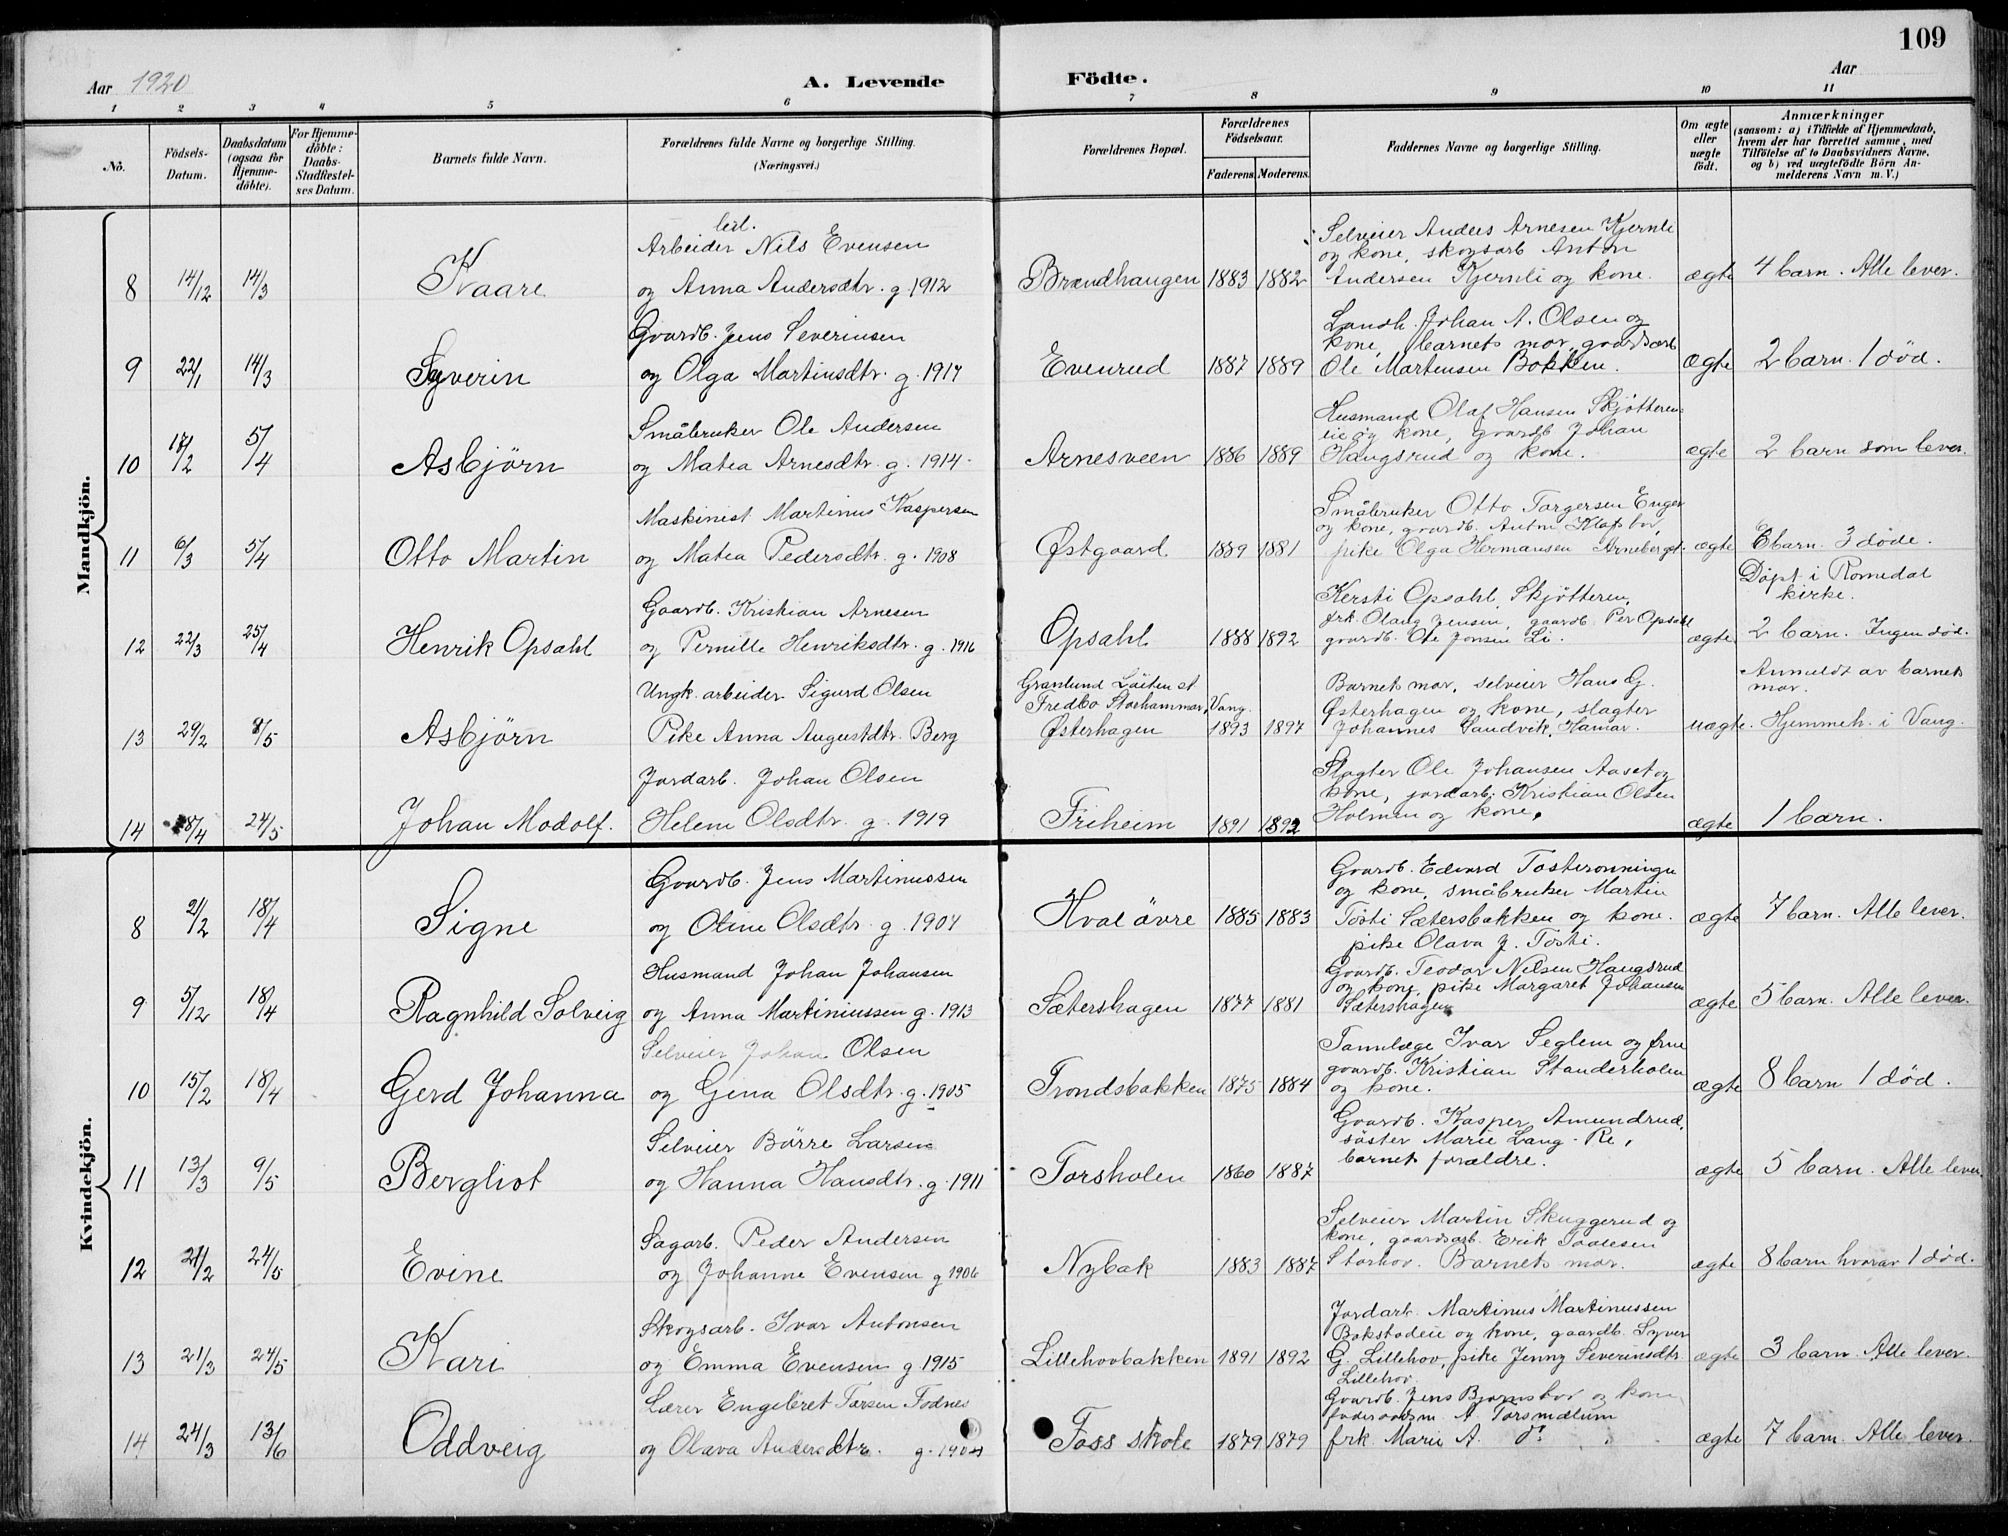 109
Aar 1920
A. Levende Födte.
Aar
1 2 3 4 5 6 7 8 9 10 11
No.
Födsels-
Datum.
Daabsdatum
(ogsaa för
Hjemme-
döbte).
For Hjemme-
döbte:
Daabs-
Stadfæstel-
ses Datum.
Barnets fulde Navn.
Forældrenes fulde Navne og borgerlige Stilling.
(Næringsvei.)
Forældrenes Bopæl.
Forældrenes
Födselsaar.
Faderens. Moderens.
Faddernes Navne og borgerlige Stilling.
Om ægte
eller
uægte
födt.
Anmærkninger
(saasom: a) i Tilfælde af Hjemmedaab,
hvem der har forrettet samme, med
Tilföielse af to Daabsvidners Navne,
og b) ved uægtefödte Börn An-
melderens Navn m. V.)
Mandkjön.
Arbeider Nils Evensen
8 14/12 14/3 Kaare og Anna Andersdtr. g. 1912
Brændhaugen 1883 1882
Selveier Anders Arnesen Kjernli
og kone, skogsarb Anton
Andersen Kjernli og kone. ægte 4 barn. Alle lever.
Gaardb. Jens Severinsen
9 22/1 14/3 Syverin og Olga Martinsdtr. g. 1917
Evenrud 1887 1889
Landh. Johan A. Olsen og
kone, barnets mor, gaardsarb
Ole Martensen Bakken. ægte 2 barn. 1 död.
Småbruker Ole Andersen
10 17/2 5/4 Asbjörn og Matea Arnesdtr. g. 1914
Arnesveen 1886 1889
Husmand Olaf Hansen Skjötteren-
eie og kone, gaardb Johan
Haugsrud og kone. ægte 2 barn som lever.
Maskinist Martinus Kaspersen
11 6/3 5/4 Otto Martin og Matea Pedersdtr. g. 1908
Østgaard 1889 1881
Småbruker Otto Torgersen Enger
og kone, gaardb. Anton
pike Olga Hermansen Arneberget. ægte 8 barn. 3 döde.
Döpt i Romedal
kirke.
Gaardb. Kristian Arnesen
12 22/3 25/4 Henrik Opsahl og Pernille Henriksdtr. g. 1916
Opsahl 1888 1892
Kersti Opsahl, Skjötteren,
frk. Olaug Jensen, gaardb. Per Opsahl
gaardb. Ole Jonsen Li. ægte 2 barn. Ingen död.
Ungk. arbeider Sigurd Olsen
13 29/2 8/5 Asbjörn Pike Anna Augustdtr. Berg
Granlund Löiten st
Fredbo Storhammar, Vang.
Østerhagen 1893 1897
Barnets mor, selveier Hans G.
Østerhagen og kone, slagter
Johannes Sandvik, Hamar. uægte.
Anmeldt av barnets
mor.
Hjemmeh. i Vang.
Jordarb. Johan Olsen
14 8/4 24/5 Johan Modolf. Helene Olsdtr. g. 1919
Friheim 1891 1892
Slagter Ole Johansen Aaset og
kone, jordarb. Kristian Olsen
Holmen og kone. ægte 1 barn.
Kvindekjön.
Gaardb. Jens Martinussen
8 21/2 18/4 Signe og Oline Olsdtr. g. 1907
Hval övre 1885 1883
Gaardb. Edvard Tosteronningen
og kone, småbruker Martin
Tosti Sætersbakken og kone.
pike Olava J. Tosti. ægte 7 barn. Alle lever.
Husmand Johan Johansen
9 5/12 18/4 Ragnhild Solveig og Anna Martiniussen g. 1913
Sætershagen 1877 1881
Gaardb. Teodor Nilsen Haugsrud
og kone, pike Margaret Johansen
Sætershagen ægte 5 barn. Alle lever.
Selveier Johan Olsen
10 15/2 18/4 Gerd Johanna og Gina Olsdtr. g. 1905
Trondsbakken 1875 1884
Tannlæge Ivar Seglem og frue
gaardb. Kristian Standerholen
og kone. ægte 8 barn 1 död.
Selveier Börre Larsen
11 13/3 9/5 Bergliot og Hanna Hansdtr. g. 1911
Torsholen 1860 1887
Gaardb. Kasper Amundrud,
söster Marie Lang-Re,
barnets forældre. ægte 5 barn. Alle lever.
Sagarb. Peder Andersen
12 21/2 24/5 Evine og Johanne Evensen g 1906
Nybak 1883 1887
Selveier Martin Skuggerud og
kone, gaardsarb. Erik Paalesen
Storhov. Barnets mor. ægte 8 barn hvorav 1 död.
Skogsarb. Ivar Antonsen
13 21/3 24/5 Kari og Emma Evensen g 1915
Lillehovbakken 1891 1892
Jordarb. Martinus Martinussen
Bakstadeie og kone, gaardb. Syver
G. Lillehov, pike Jenny Severinsdtr.
Lillehov. ægte 3 barn. Alle lever.
Lærer Engebret Tarsen Fodnes
14 24/3 13/6 Oddveig og Olava Andersdtr. g. 1904
Foss skole 1879 1879
Gaardb. Jens Bjørnshov og kone
A. Torsmælum
frk. Marie A. do ægte 7 barn. Alle lever.